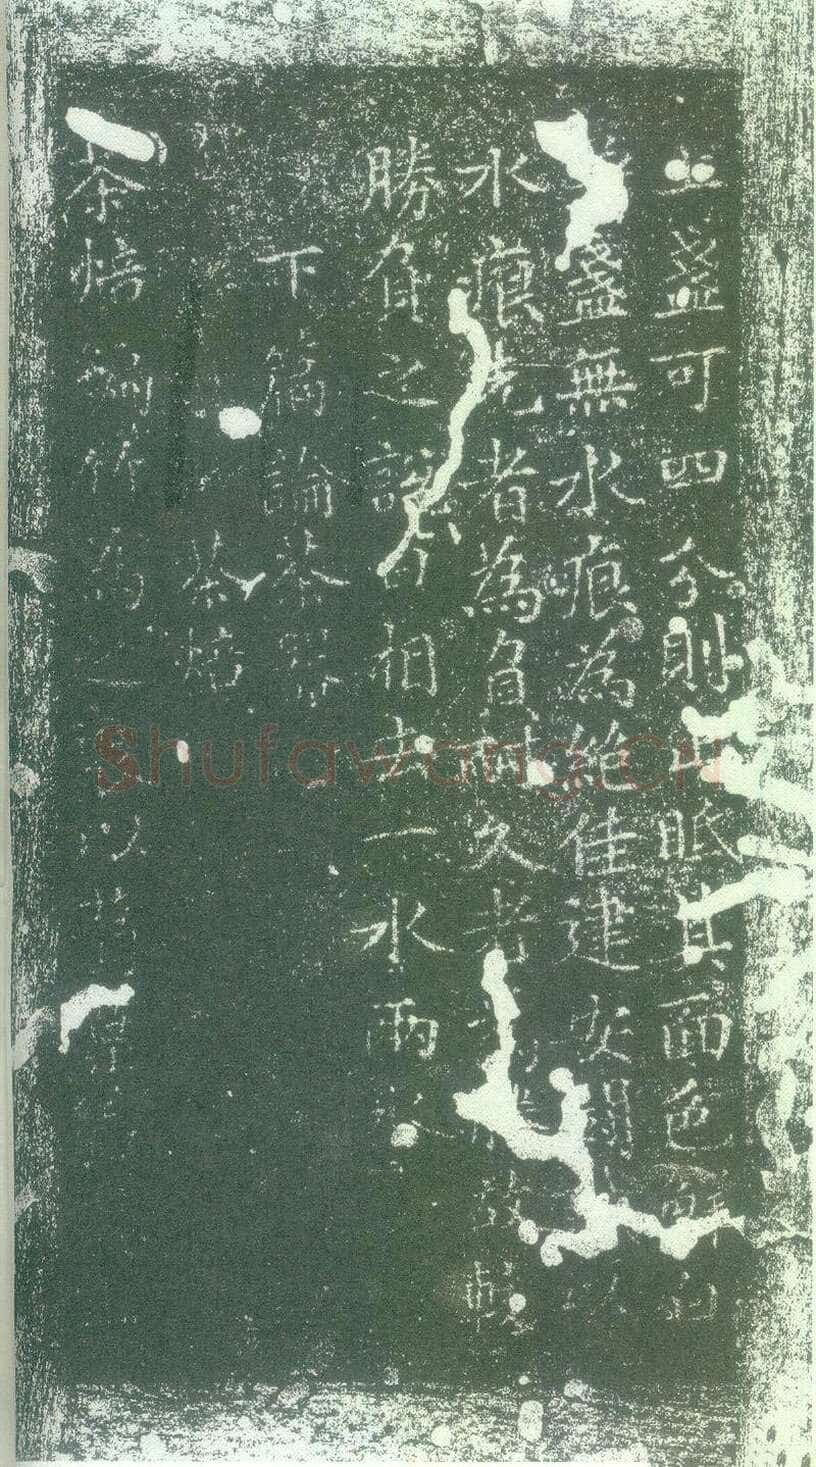 上盞可四分則止眂其面色鮮白
盞無水痕為絕佳建安鬬以
水痕先者為負耐久者故較
勝負之說曰相去一水兩
下篇論茶器
茶焙
茶焙編竹為以
Shufawang.CN